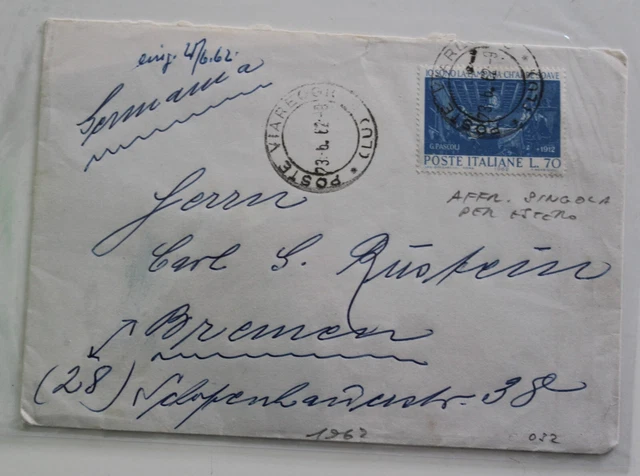 eing. 25/6.62.
Germania
POSTE VIAREGGIO (LU)
23.6.62
G. PASCOLI 1912
POSTE ITALIANE L. 70
AFFR. SINGOLA
PER ESTERO
Herrn
Carl G. Rüstein
Bremen
(28) Schopenhauerstr. 38
1962
032